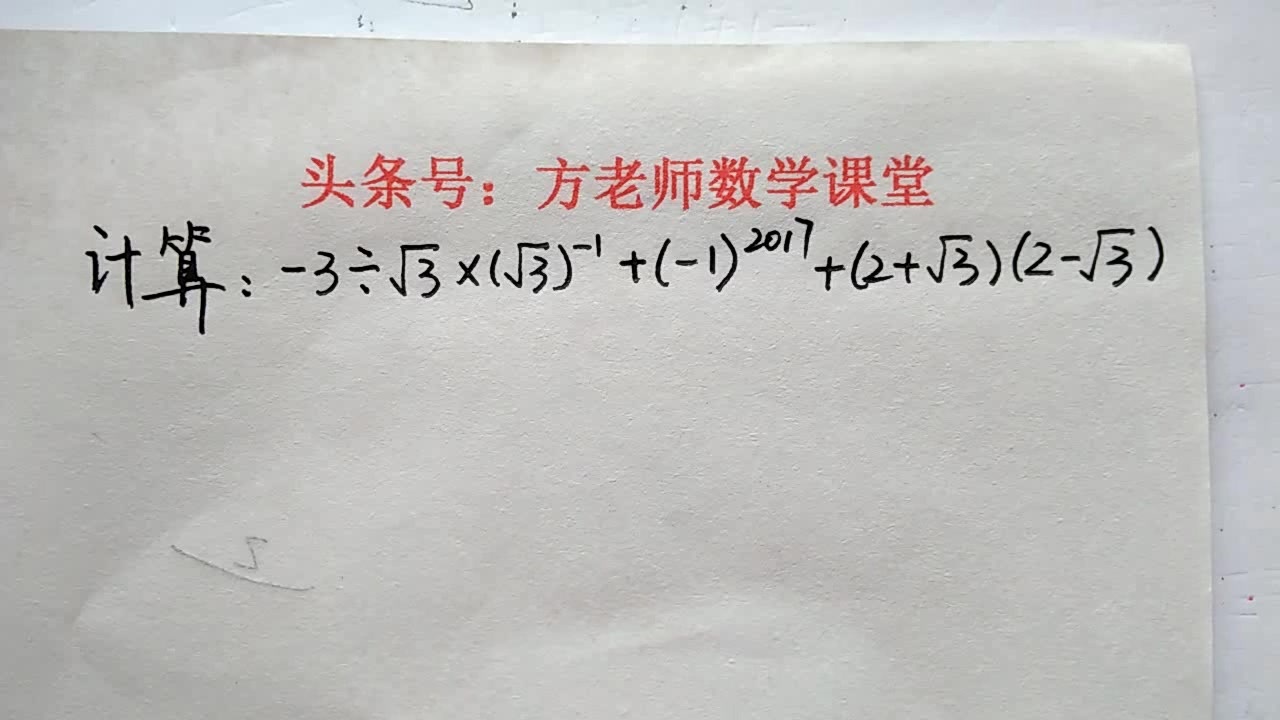 头条号：方老师数学课堂
计算：-3÷√3×(√3)⁻¹+(-1)²⁰¹⁷+(2+√3)(2-√3)
5